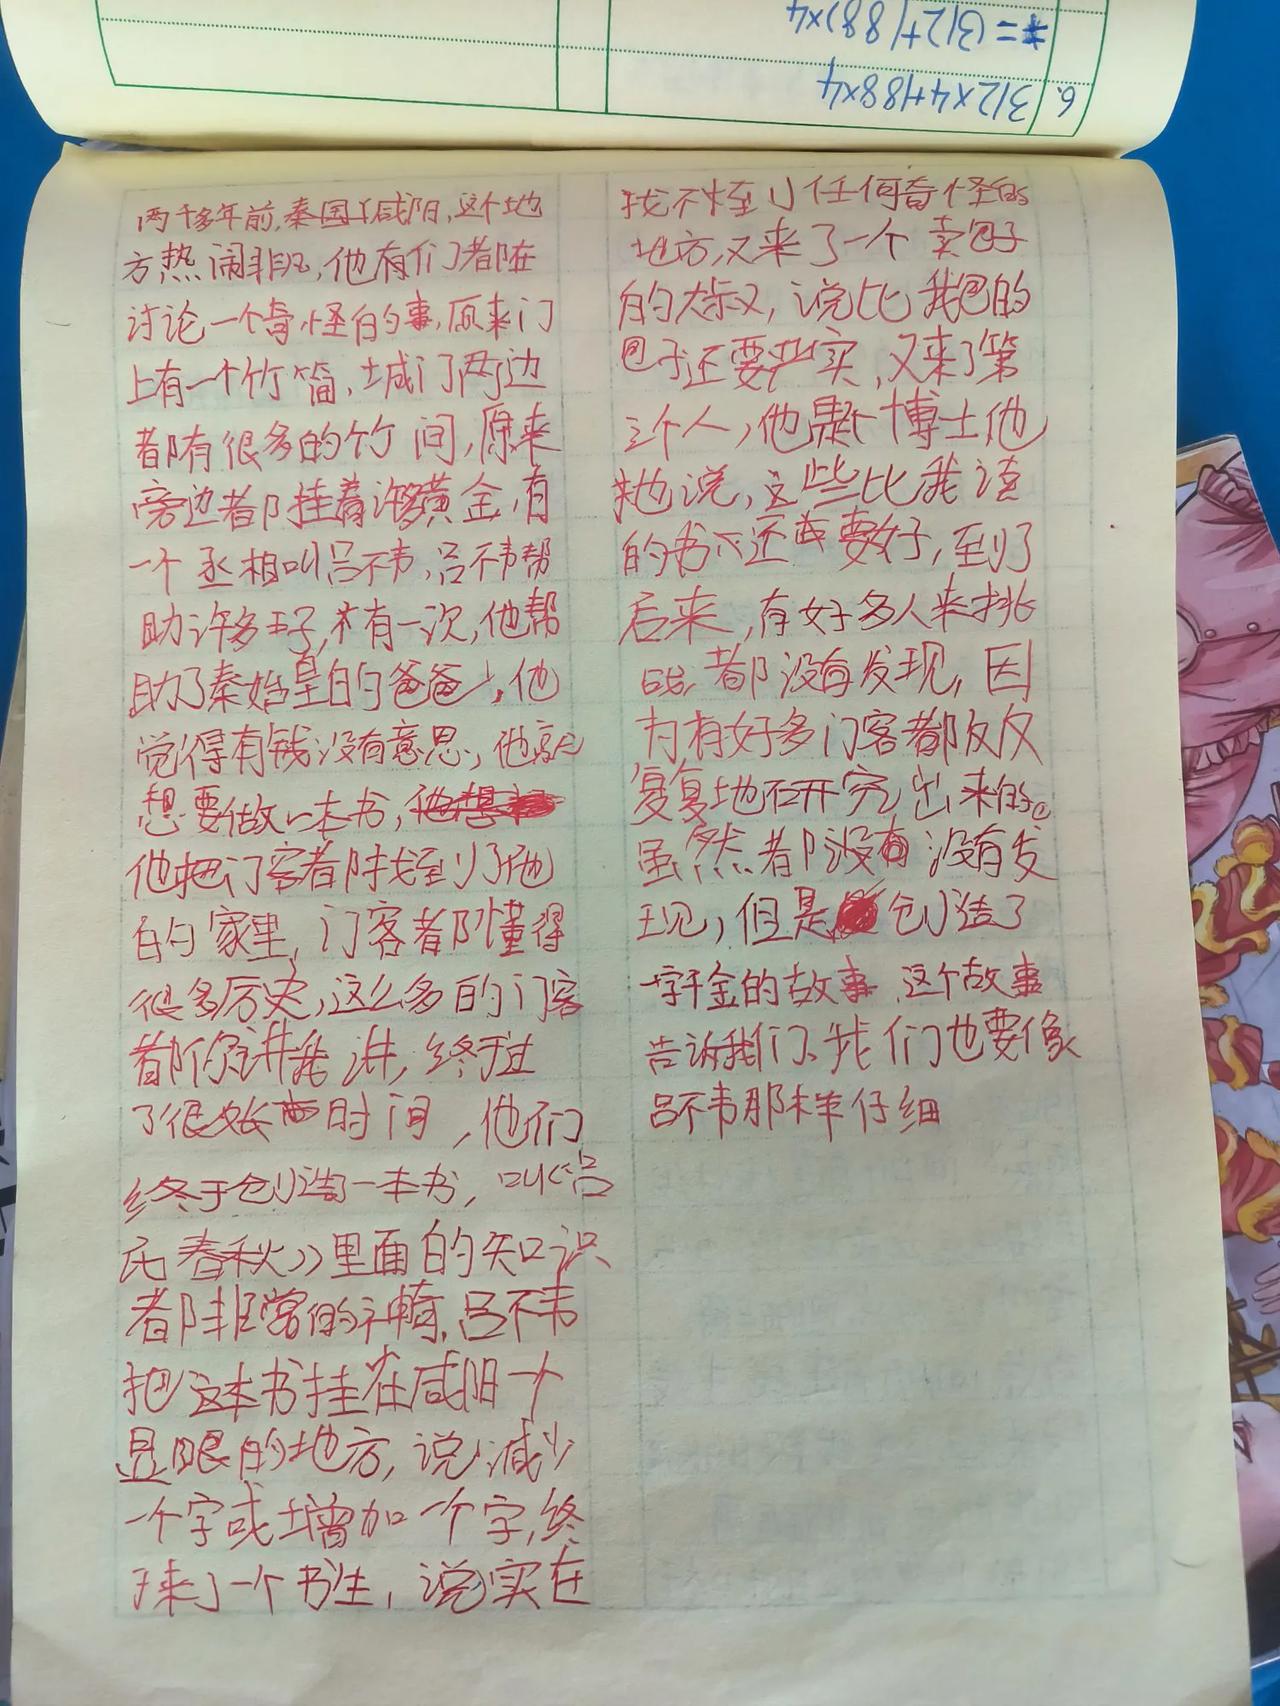 6.
312×4+188×4
=(312+188)×4
两千多年前,秦国咸阳,这个地
方热闹非凡,他有们都在
讨论一个奇怪的事,原来门
上有一个竹简,城门两边
都有很多的竹间,原来
旁边都挂着许多黄金,有
一个丞相叫吕不韦,吕不韦帮
助许多王子,有一次,他帮
助了秦始皇的爸爸,他
觉得有钱没有意思,他就
想要做一本书,
他把门客都找到了他
的家里,门客都懂得
很多历史,这么多的门客
都你讲我讲,终于过
了很长时间,他们
终于创造一本书,叫《吕
氏春秋》里面的知识
都非常的神奇,吕不韦
把这本书挂在咸阳一个
显眼的地方,说减少
一个字或增加一个字,终
于来了一个书生,说实在
找不到任何奇怪的
地方,又来了一个卖包子
的大叔,说比我包的
包子还要严实,又来了第
三个人,他是个博士他
说,这些比我读
的书还要好,到了
后来,有好多人来挑
战,都没有发现,因
为有好多门客都反反
复复地研究出来的。
虽然都没有没有发
现,但是创造了
一字千金的故事,这个故事
告诉我们、我们也要像
吕不韦那样仔细